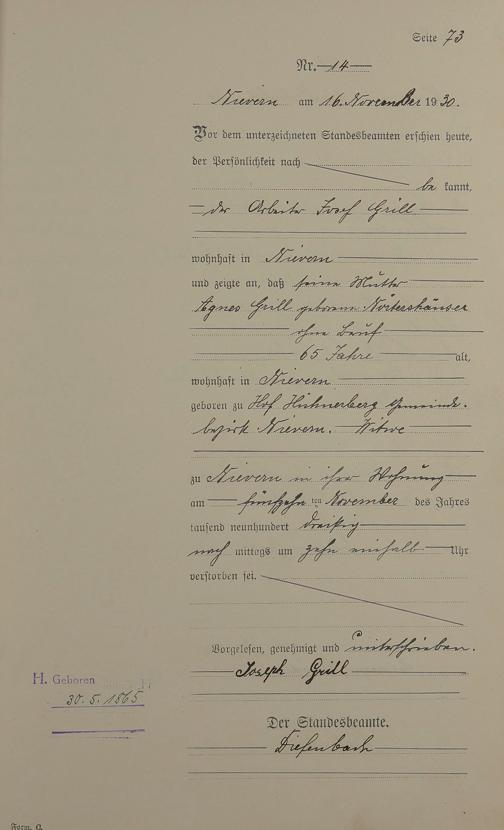 Seite 73
Nr. 14
Nievern am 16. November 1930.
Vor dem unterzeichneten Standesbeamten erschien heute,
der Persönlichkeit nach
be kannt,
der Arbeiter Josef Grill
wohnhaft in Nievern
und zeigte an, daß seine Mutter
Agnes Grill geborene Nörtershäuser
ohne Beruf
65 Jahre alt,
wohnhaft in Nievern
geboren zu Hof Hühnerberg Gemeinde-
bezirk Nievern. Witwe
zu Nievern in ihrer Wohnung
am fünfzehn ten November des Jahres
tausend neunhundert dreißig
nach mittags um zehn einhalb Uhr
verstorben sei.
Vorgelesen, genehmigt und unterschrieben.
Joseph Grill
H. Geboren
30. 5. 1865
Der Standesbeamte.
Diefenbach
Form. C.